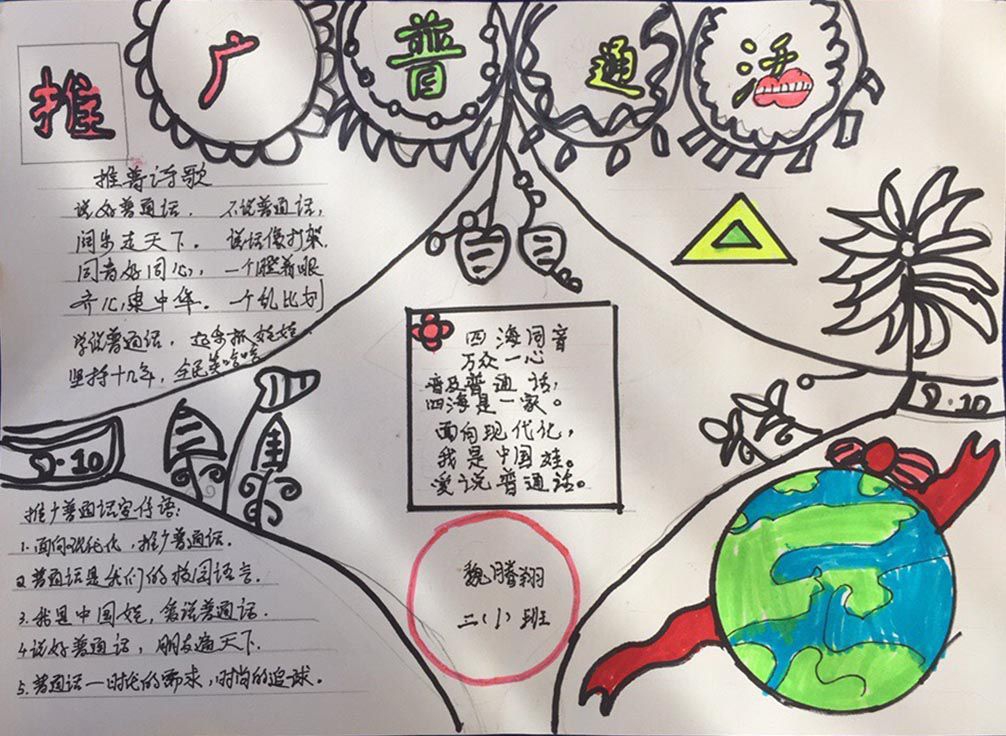 推广普通话
推普诗歌
说好普通话， 不说普通话，
阔步走天下。 说话像打架，
同音好同心， 一个瞪着眼
齐心建中华。 一个乱比划
学说普通话，
坚持十几年，全民笑哈哈
9·10
推广普通话宣传语：
1.面向现代化，推广普通话。
2.普通话是我们的校园语言。
3.我是中国娃，爱说普通话。
4.说好普通话，朋友遍天下.
5.普通话一时代的需求，时尚的追球。
四海同音
万众一心
普及普通话，
四海是一家。
面向现代化，
我是中国娃。
爱说普通话。
魏腾翔
二（1）班
9·10